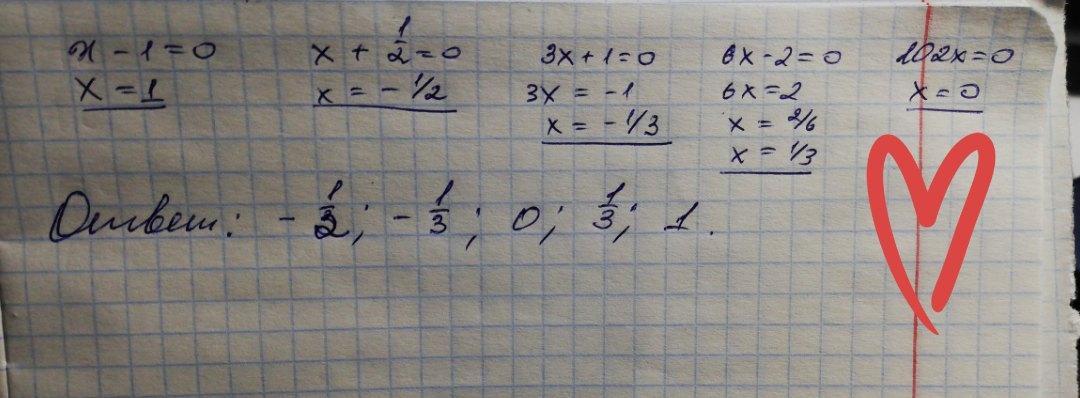 x - 1 = 0   x + 1/2 = 0   3x + 1 = 0   6x - 2 = 0   102x = 0
x = 1   x = - 1/2   3x = -1   6x = 2   x = 0
x = - 1/3   x = 2/6
x = 1/3
Ответ: - 1/2; - 1/3; 0; 1/3; 1.